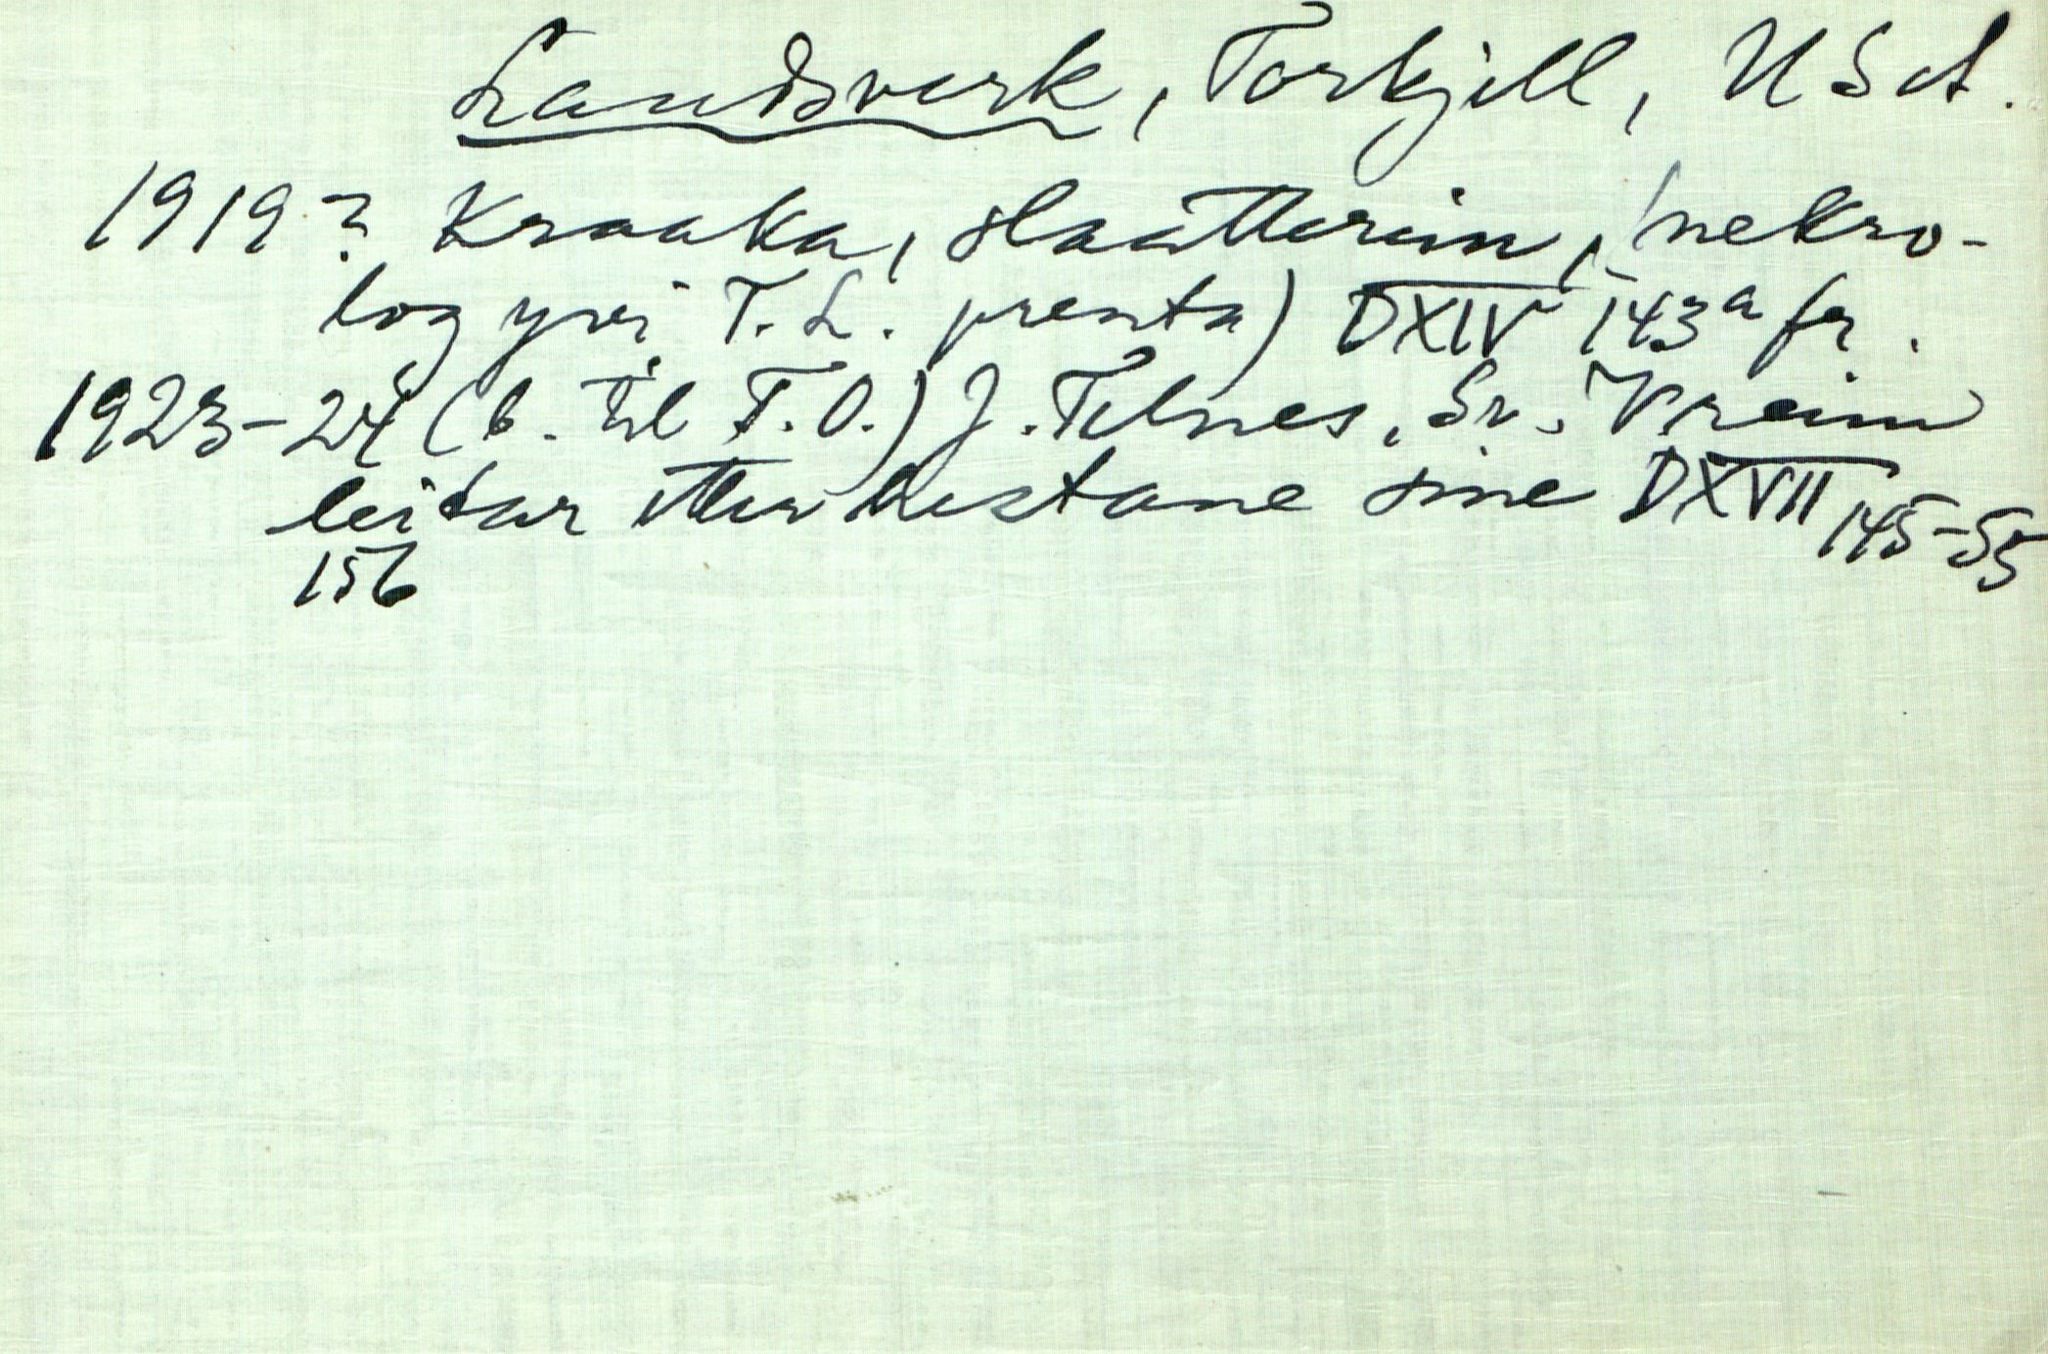 Landsverk, Torkjell, USA.
1919? Kraaka, slaatterim, (nekro-
log yvi T.L. prenta) DXIV 143a fr.
1923-24 (b. til T.O.) J. Telnes, Sv. Vreim
leitar etter hestane sine DXVII 145-55
156